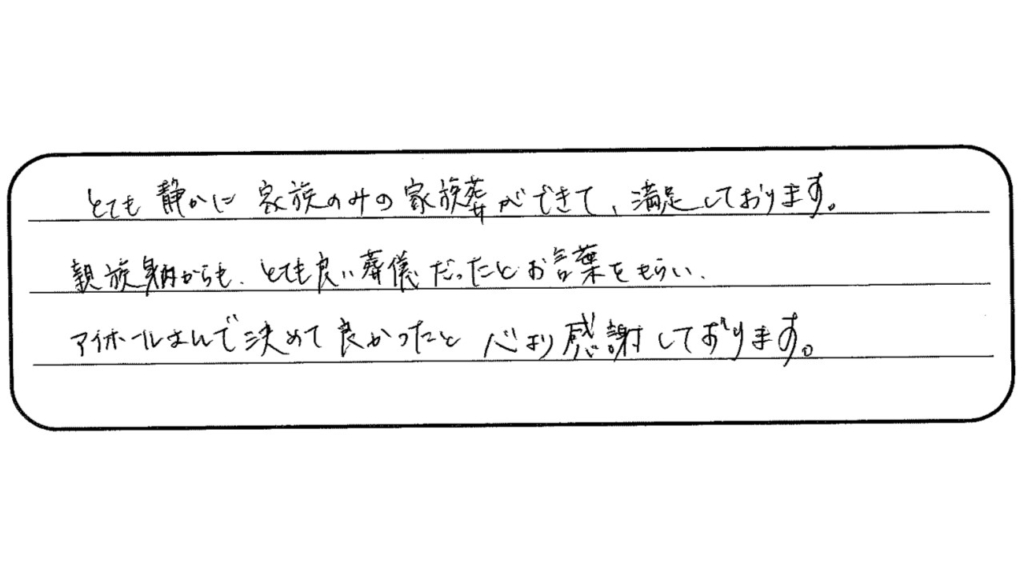 とても静かに家族のみの家族葬ができて、満足しております。
親族身内からも、とても良い葬儀だったとお言葉をもらい、
アイホールさんで決めて良かったと心より感謝しております。